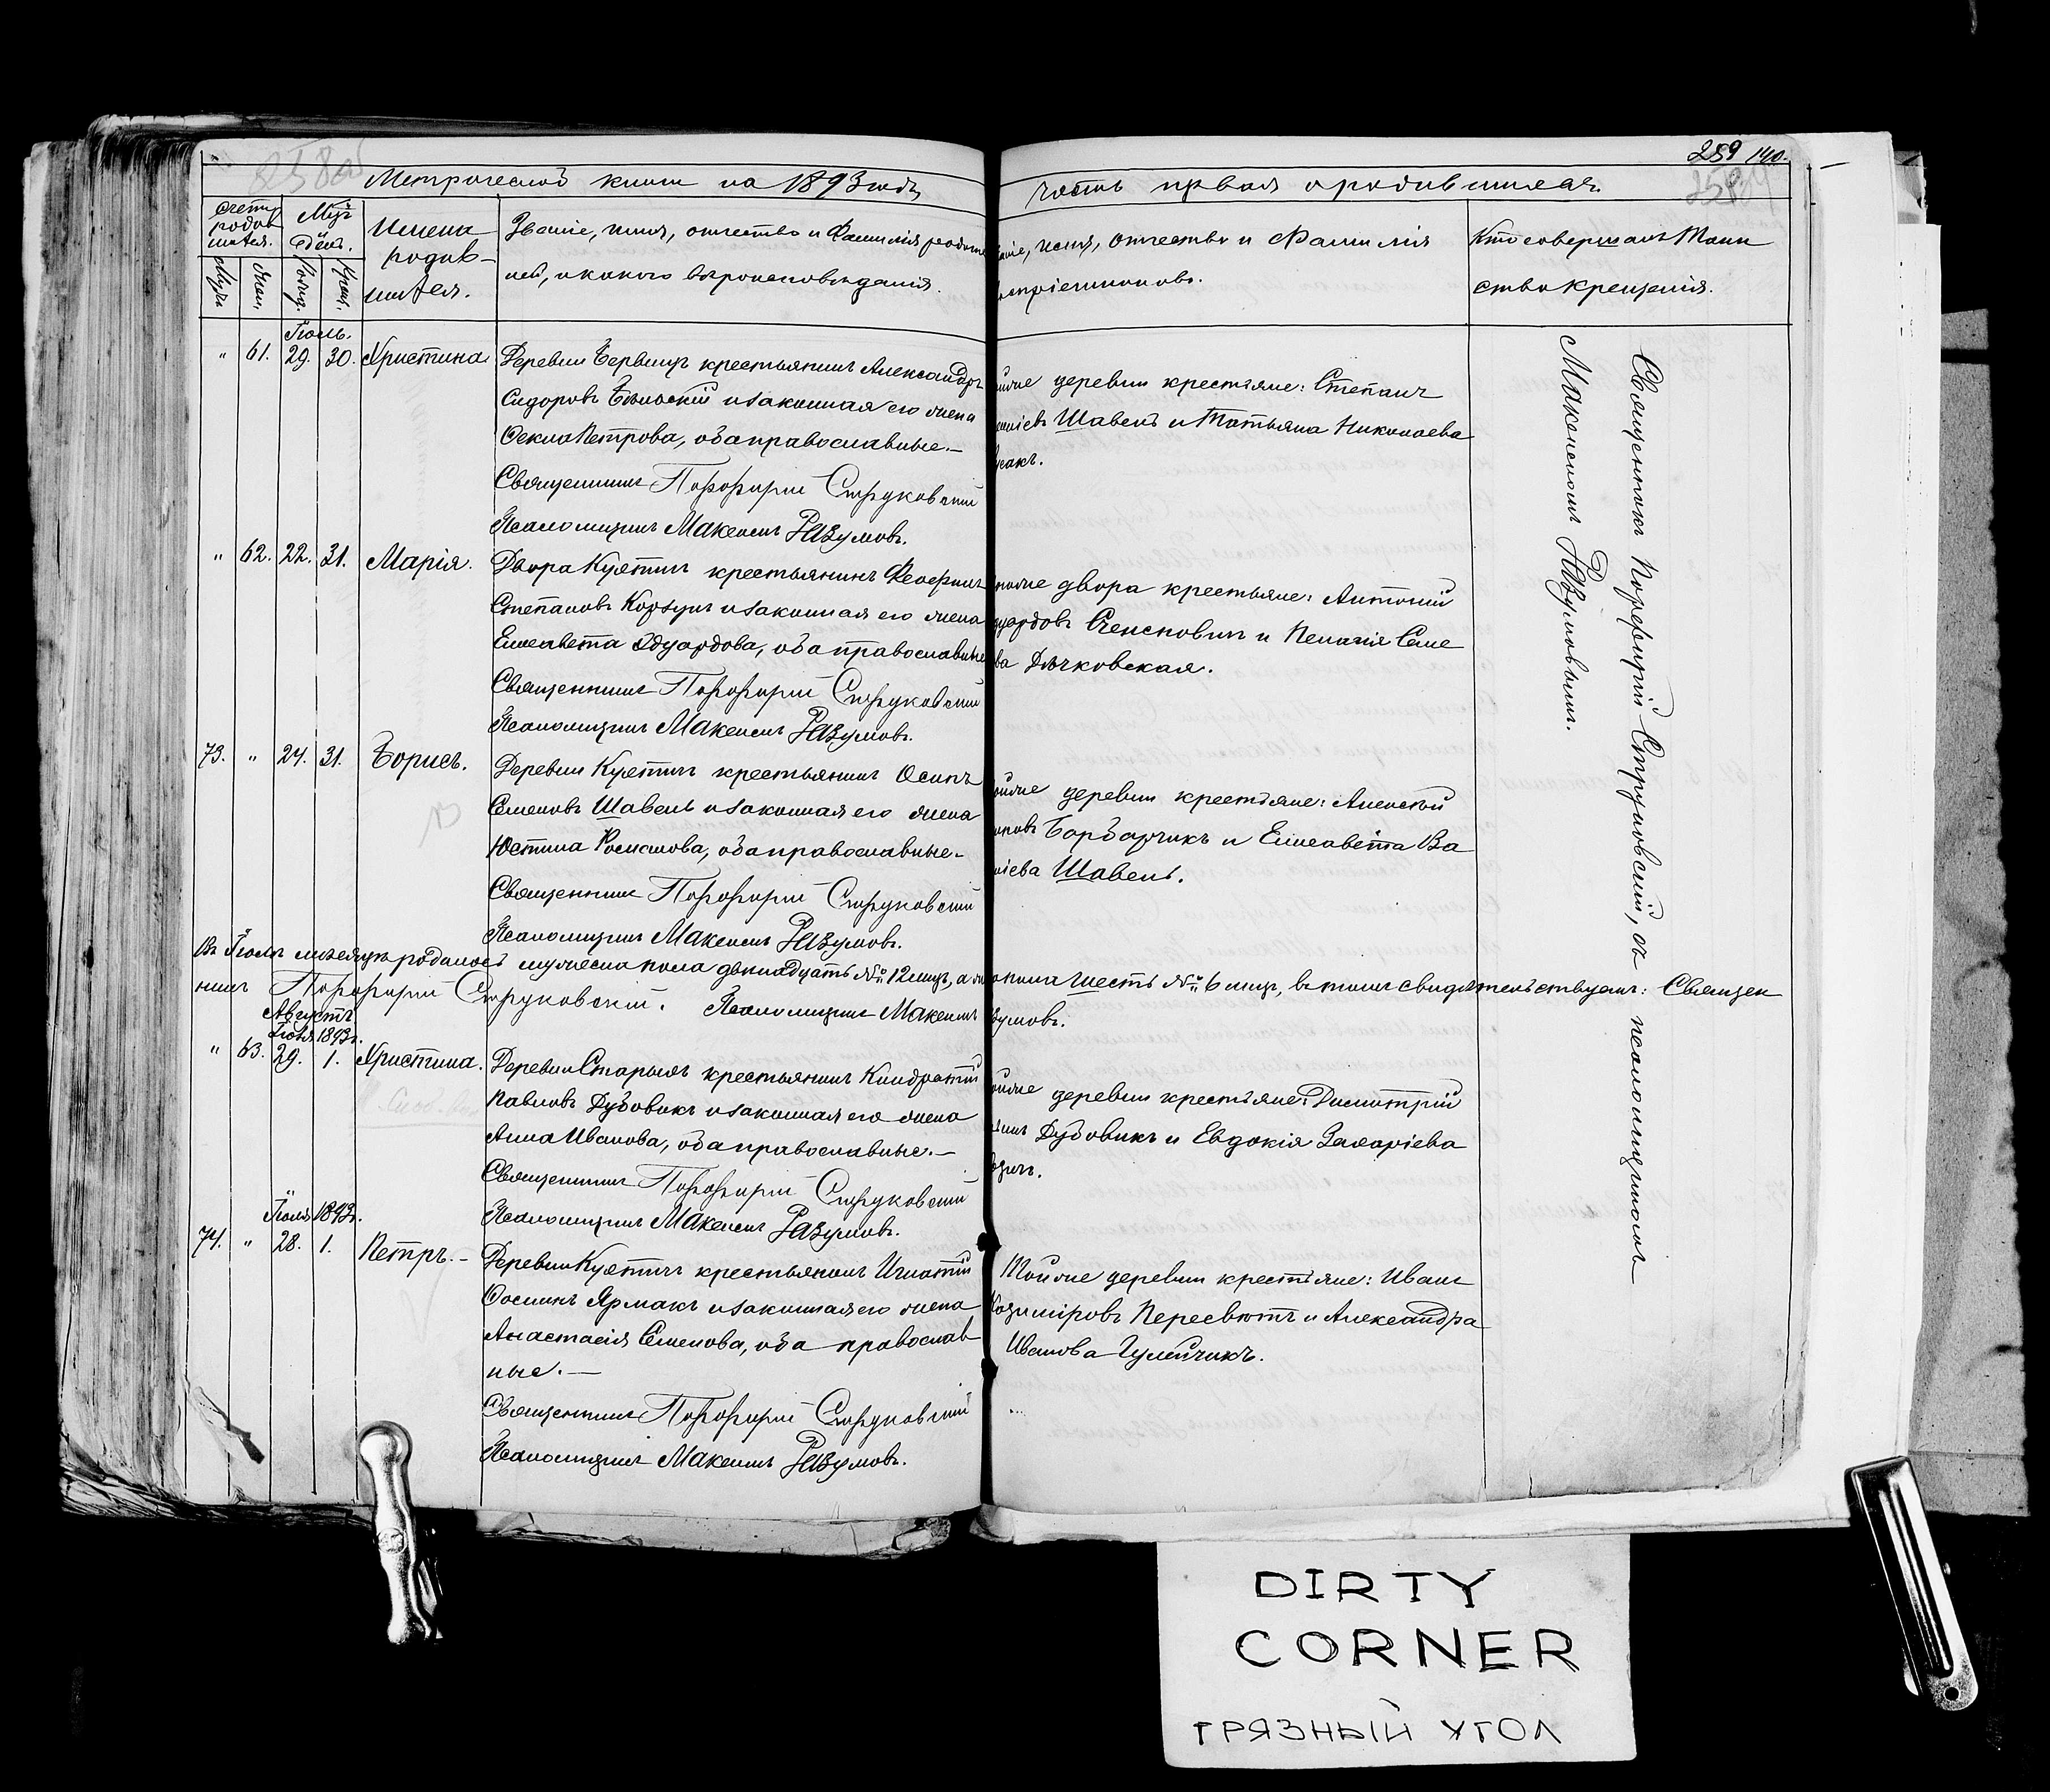 259 140.
Метрической книги на 1893 годъ,
часть первая о родившихся.
Счетъ родив шихся.
Муж.
Жен.
Рожд.
Крещ.
Имена родив-
шихся.
Званіе, имя, отчество и фамилія родите
лей, и какого вѣроисповѣданія.
имя, отчество и фамилія
воспріемниковъ.
Кто совершалъ Таин
ство крещенія.
Іюль.
" 61. 29. 30. Христина
Деревни крестьянинъ Александръ
Сидоровъ Бѣльскій и законная его жена
Ѳекла Петрова, оба православные.—
Священникъ Порфирій Струковскій
Псаломщикъ Максимъ Разумовъ.
деревни крестьяне: Степанъ
Шавель и Татьяна Николаева
" 62. 22. 31. Марія.
Двора Куятичи крестьянинъ
Степановъ Корзунъ и законная его жена
Елисавета Эдуардова, оба православные
Священникъ Порфирій Струковскій
Псаломщикъ Максимъ Разумовъ.
двора крестьяне: Антоній
и Пелагія Семе
ва
73. " 24. 31. Борисъ.
Деревни Куятичи крестьянинъ Осипъ
Семеновъ Шавель и законная его жена
Юстина Романова, оба православные.
Священникъ Порфирій Струковскій
Псаломщикъ Максимъ Разумовъ.
деревни крестьяне: Алексѣй
Барбарчикъ и Елисавета Ва
Шавель.
Въ Іюлѣ мѣсяцѣ родилось мужеска пола двѣнадцать 12 лицъ, а пола шесть 6 лицъ, въ томъ свидѣтельствуемъ: Священ
никъ Порфирій Струковскій. Псаломщикъ Максимъ
Августъ
Іюля 1893г.
" 63. 29. 1. Христина.
Деревни Старыхъ крестьянинъ Киндратій
Павловъ Дубовикъ и законная его жена
Анна Иванова, оба православные.—
Священникъ Порфирій Струковскій
Псаломщикъ Максимъ Разумовъ.
деревни крестьяне: Димитрій
Дубовикъ и Евдокія Захаріева
Іюля 1893г.
74. " 28. 1. Петръ.—
Деревни Куятичи крестьянинъ Игнатій
Ѳоминъ Ярмакъ и законная его жена
Анастасія Семенова, оба православ
ные.—
Священникъ Порфирій Струковскій
Псаломщикъ Максимъ Разумовъ.
Тойже деревни крестьяне: Иванъ
Казиміровъ Пересвютъ и Александра
Иванова Гулейчикъ.
Священникъ Порфирій Струковскій, съ псаломщикомъ
Максимомъ Разумовымъ.
DIRTY
CORNER
ГРЯЗНЫЙ УГОЛ